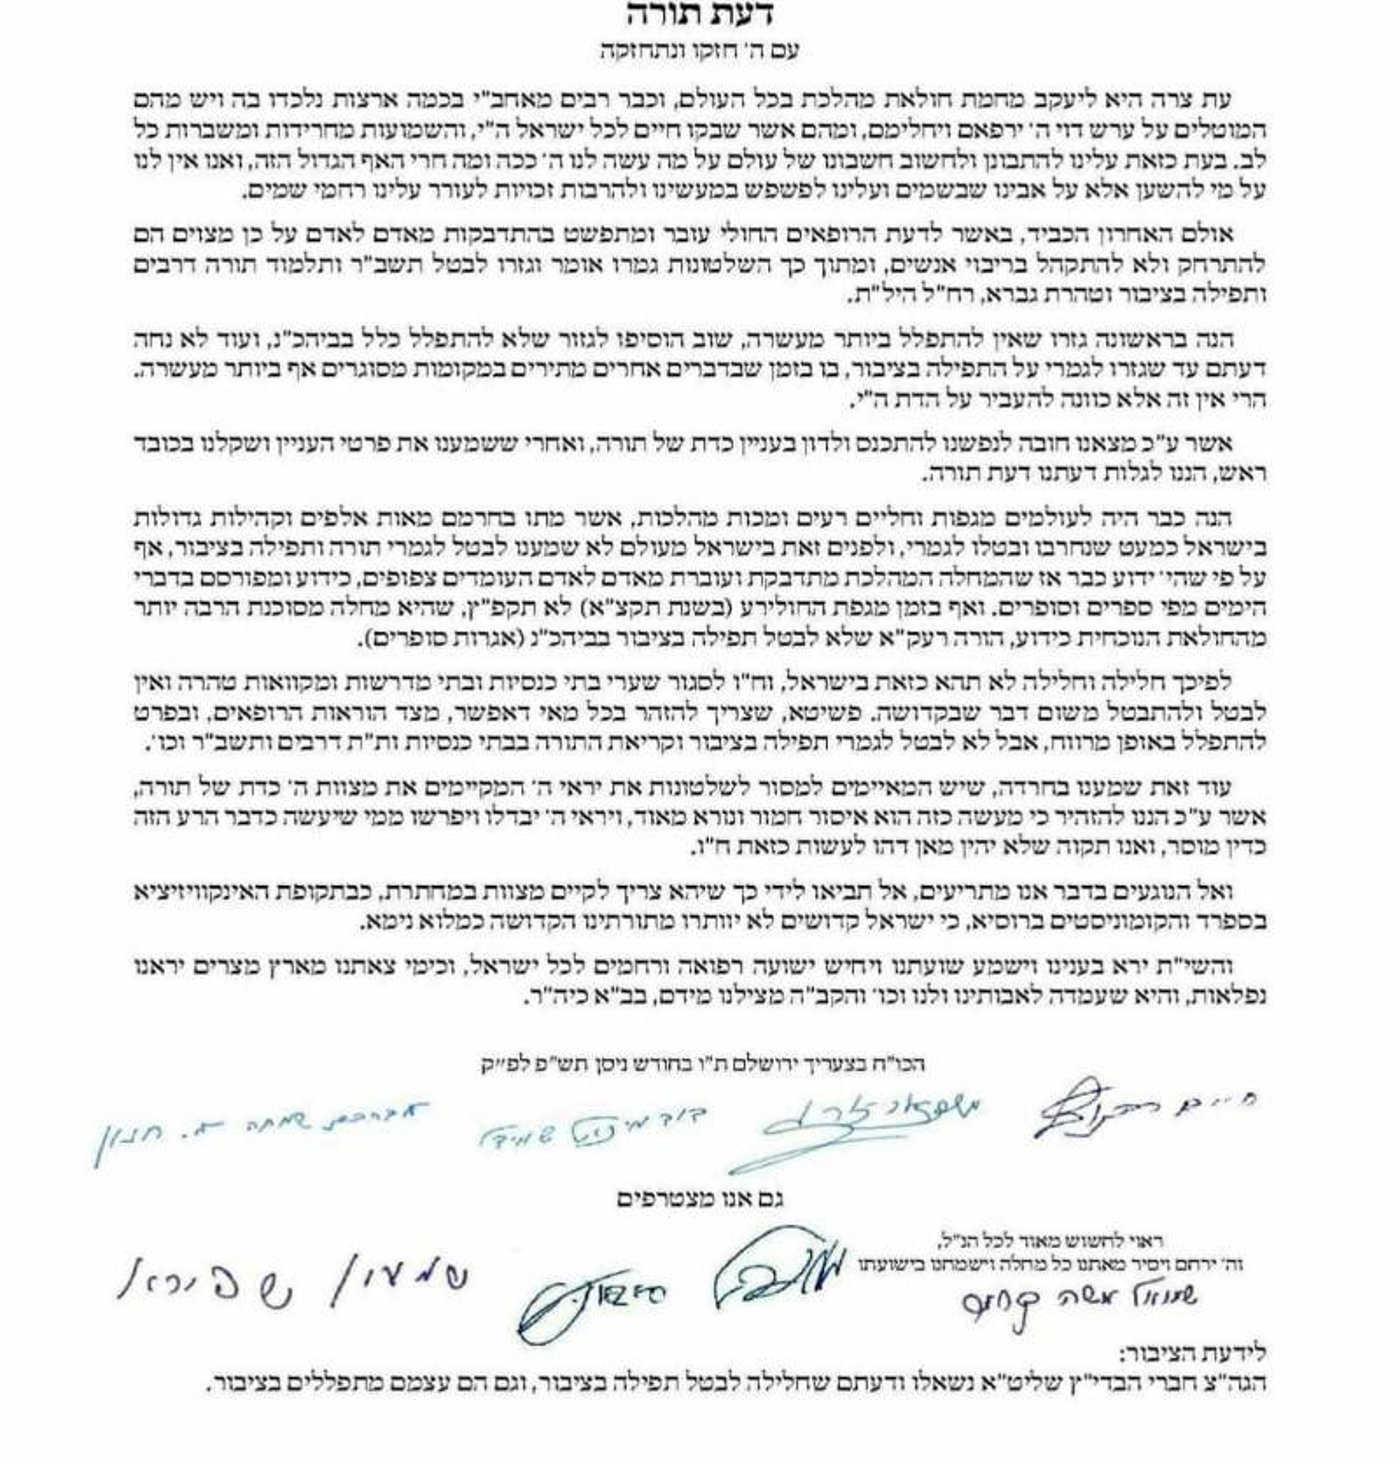 דעת תורה
עם ה׳ חזקו ונתחזקה
עת צרה היא ליעקב מחמת חולאת מהלכת בכל העולם, וכבר רבים מאחב"י בכמה ארצות נלכדו בה ויש מהם
המוטלים על ערש דוי ה׳ ירפאם ויחלימם, ומהם אשר שבקו חיים לכל ישראל ה"י, והשמועות מחרידות ומשברות כל
לב. בעת כזאת עלינו להתבונן ולחשוב חשבונו של עולם על מה עשה לנו ה׳ ככה ומה חרי האף הגדול הזה, ואנו אין לנו
על מי להשען אלא על אבינו שבשמים ועלינו לפשפש במעשינו ולהרבות זכויות לעורר עלינו רחמי שמים.
אולם האחרון הכביד, באשר לדעת הרופאים החולי עובר ומתפשט בהתדבקות מאדם לאדם על כן מצוים הם
להתרחק ולא להתקהל בריבוי אנשים, ומתוך כך השלטונות גמרו אומר וגזרו לבטל תשב"ר ותלמוד תורה דרבים
ותפילה בציבור וטהרת גברא, רח"ל היל"ת.
הנה בראשונה גזרו שאין להתפלל ביותר מעשרה, שוב הוסיפו לגזור שלא להתפלל כלל בביהכ"נ, ועוד לא נחה
דעתם עד שגזרו לגמרי על התפילה בציבור, בו בזמן שבדברים אחרים מתירים במקומות מסוגרים אף ביותר מעשרה.
הרי אין זה אלא כוונה להעביר על הדת ה"י.
אשר ע"כ מצאנו חובה לנפשנו להתכנס ולדון בעניין כדת של תורה, ואחרי ששמענו את פרטי העניין ושקלנו בכובד
ראש, הננו לגלות דעתנו דעת תורה.
הנה כבר היה לעולמים מגפות וחליים רעים ומכות מהלכות, אשר מתו בחרמם מאות אלפים וקהילות גדולות
בישראל כמעט שנחרבו ובטלו לגמרי, ולפנים זאת בישראל מעולם לא שמענו לבטל לגמרי תורה ותפילה בציבור, אף
על פי שהי׳ ידוע כבר אז שהמחלה המהלכת מתדבקת ועוברת מאדם לאדם העומדים צפופים, כידוע ומפורסם בדברי
הימים מפי ספרים וסופרים. ואף בזמן מגפת החולירע (בשנת תקצ"א) לא תקפ"ץ, שהיא מחלה מסוכנת הרבה יותר
מהחולאת הנוכחית כידוע, הורה רעק"א שלא לבטל תפילה בציבור בביהכ"נ (אגרות סופרים).
לפיכך חלילה וחלילה לא תהא כזאת בישראל, וח"ו לסגור שערי בתי כנסיות ובתי מדרשות ומקוואות טהרה ואין
לבטל ולהתבטל משום דבר שבקדושה. פשיטא, שצריך להזהר בכל מאי דאפשר, מצד הוראות הרופאים, ובפרט
להתפלל באופן מרווח, אבל לא לבטל לגמרי תפילה בציבור וקריאת התורה בבתי כנסיות ות"ת דרבים ותשב"ר וכו׳.
עוד זאת שמענו בחרדה, שיש המאיימים למסור לשלטונות את יראי ה׳ המקיימים את מצוות ה׳ כדת של תורה,
אשר ע"כ הננו להזהיר כי מעשה כזה הוא איסור חמור ונורא מאוד, ויראי ה׳ יבדלו ויפרשו ממי שיעשה כדבר הרע הזה
כדין מוסר, ואנו תקוה שלא יהין מאן דהו לעשות כזאת ח"ו.
ואל הנוגעים בדבר אנו מתריעים, אל תביאו לידי כך שיהא צריך לקיים מצוות במחתרת, כבתקופת האינקוויזיציא
בספרד והקומוניסטים ברוסיא, כי ישראל קדושים לא יוותרו מתורתינו הקדושה כמלוא נימא.
והשי"ת ירא בענינו וישמע שועתנו ויחיש ישועה רפואה ורחמים לכל ישראל, וכימי צאתנו מארץ מצרים יראנו
נפלאות, והיא שעמדה לאבותינו ולנו וכו׳ והקב"ה מצילנו מידם, בב"א כיה"ר.
הכו"ח בצעריך ירושלם ת"ו בחודש ניסן תש"פ לפ״ק
חיים
דוב שמידל אברהם שמחה
גם אנו מצטרפים
ראוי לחשוש מאוד לכל הנ"ל,
וה׳ ירחם ויסיר מאתנו כל מחלה וישמחנו בישועתו
שמואל משה
שמעון שפירא
לידעת הציבור:
הגה"צ חברי הבדי"ץ שליט"א נשאלו ודעתם שחלילה לבטל תפילה בציבור, וגם הם עצמם מתפללים בציבור.